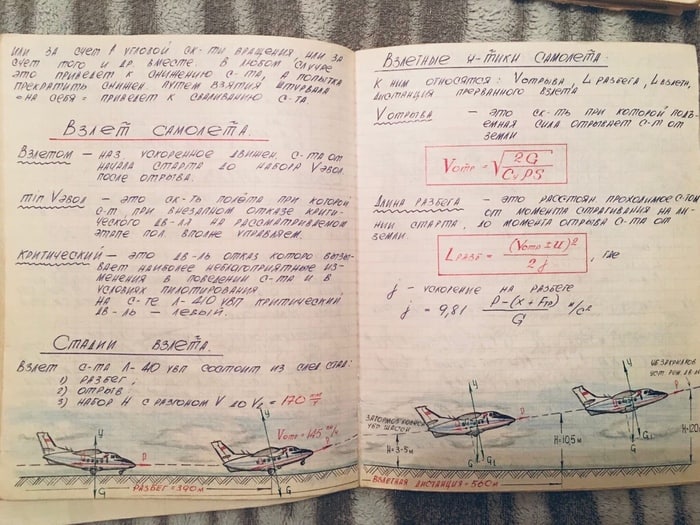 ИЛИ ЗА СЧЕТ ↑ УГЛОВОЙ СК-ТИ ВРАЩЕНИЯ, ИЛИ ЗА
СЧЕТ ТОГО И ДР. ВМЕСТЕ. В ЛЮБОМ СЛУЧАЕ
ЭТО ПРИВЕДЕТ К СНИЖЕНИЮ С-ТА, А ПОПЫТКА
ПРЕКРАТИТЬ СНИЖЕН. ПУТЕМ ВЗЯТИЯ ШТУРВАЛА
«НА СЕБЯ» ПРИВЕДЕТ К СВАЛИВАНИЮ С-ТА.
ВЗЛЕТ САМОЛЕТА.
ВЗЛЕТОМ – НАЗ. УСКОРЕННОЕ ДВИЖЕН. С-ТА ОТ
НАЧАЛА СТАРТА ДО НАБОРА VЭВОЛ.
ПОСЛЕ ОТРЫВА.
min VЭВОЛ – ЭТО СК-ТЬ ПОЛЁТА ПРИ КОТОРОЙ
С-Т, ПРИ ВНЕЗАПНОМ ОТКАЗЕ КРИТИ-
ЧЕСКОГО ДВ-ЛА НА РАССМАТРИВАЕМОМ
ЭТАПЕ ПОЛ. ВПОЛНЕ УПРАВЛЯЕМ.
КРИТИЧЕСКИЙ – ЭТО ДВ-ЛЬ ОТКАЗ КОТОРО ВЫЗЫ-
ВАЕТ НАИБОЛЕЕ НЕБЛАГОПРИЯТНЫЕ ИЗ-
МЕНЕНИЯ В ПОВЕДЕНИИ С-ТА И В
УСЛОВИЯХ ПИЛОТИРОВАНИЯ.
НА С-ТЕ Л-410 УВП КРИТИЧЕСКИЙ
ДВ-ЛЬ – ЛЕВЫЙ.
СТАДИИ ВЗЛЕТА.
ВЗЛЕТ С-ТА Л-410 УВП СОСТОИТ ИЗ СЛЕД. СТАД:
1) РАЗБЕГ,
2) ОТРЫВ
3) НАБОР Н С РАЗГОНОМ V ДО V₂ = 170 км/ч
Vотр = 145 км/ч
У
Р
G
У
G
РАЗБЕГ = 390 м
ВЗЛЕТНЫЕ Х-ТИКИ САМОЛЕТА
К НИМ ОТНОСЯТСЯ: VОТРЫВА, L РАЗБЕГА, L ВЗЛЕТН,
ДИСТАНЦИЯ ПРЕРВАННОГО ВЗЛЕТА
VОТРЫВА – ЭТО СК-ТЬ ПРИ КОТОРОЙ ПОДЪ-
ЕМНАЯ СИЛА ОТРЫВАЕТ С-Т ОТ
ЗЕМЛИ
Vотр = √(2G / CyρS)
ДЛИНА РАЗБЕГА – ЭТО РАССТОЯН. ПРОХОДИМОЕ С-ТОМ
ОТ МОМЕНТА СТРАГИВАНИЯ НА ЛИ-
НИИ СТАРТА, ДО МОМЕНТА ОТРЫВА С-ТА ОТ
ЗЕМЛИ.
L РАЗБ = (Vотр ± U)² / 2j, ГДЕ
j – УСКОРЕНИЕ НА РАЗБЕГЕ
j = 9,81 P – (X + Fтр) / G м/с²
УБР ШАССИ
Н = 3-5м
У
Р
G
G₁
Н = 10,5м
У
Р
G
G₁
Н=120
ВЗЛЕТНАЯ ДИСТАНЦИЯ = 560 м